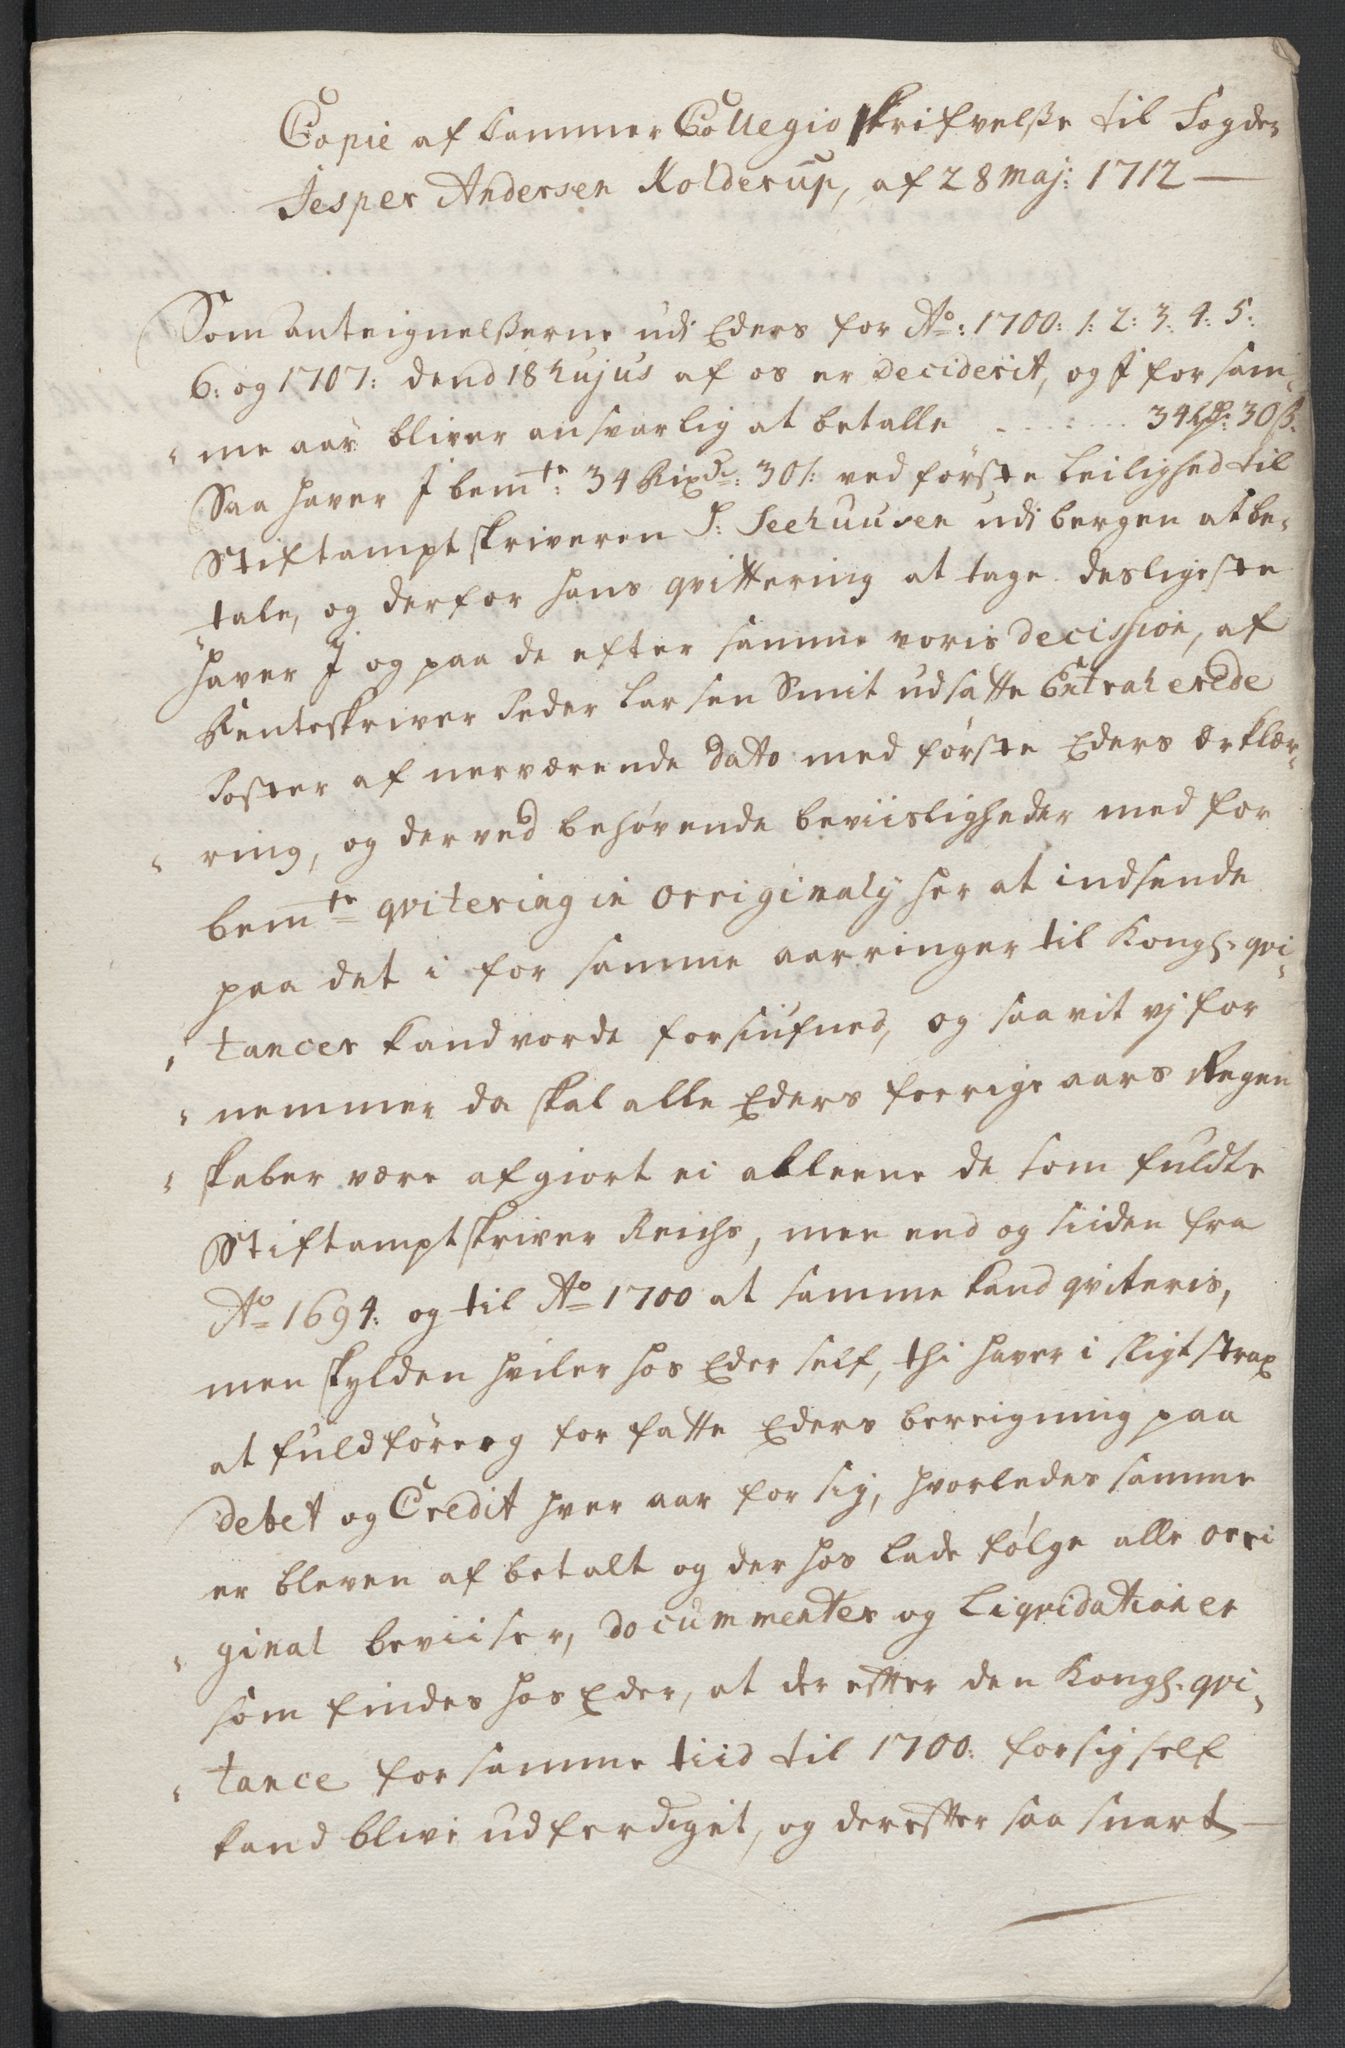 Copie af Cammer Collegio skrifvelsse til Fogden
Jesper Andersen Kolderup, af 28 maj: 1712 —
Som Anteignelsserne udi Eders for Ao: 1700: 1: 2: 3: 4: 5:
6: og 1707: dend 18 hujus af os er Deciderit, og I for sam-
me aar bliver ansvarlig at betalle ....... 34 Rdr: 30 s.
Saa hafver I bemte: 34 Rixdr: 30 s: ved førstte Leilighed til
Stiftamptskriveren S: Seehuusen udi bergen at be-
tale, og derfor hans qvittering at tage. desligeste
hafver I og paa de efter samme voris Decission, af
Renteskriver Peder Larsen Smit udsatte Extraherede
Poster af nerværende Dato med første Eders Ærklæ-
ring, og derved behøvende beviisligheder med for
bemte qvitering in Orriginaly her at indsende
paa det i for samme aarringer til Kongl: qvi-
tancer kand vorde forsiufned, og saavit vj for
nemmer da skal alle Eders forrige aars Regen
skaber være afgiort ei alleene de som fuldte
Stiftamptskriver Reichs, men end og siiden fra
Ao 1694: og til Ao 1700 at samme kand qviteris,
men skylden hviler hos Eder self, thi haver i sligt strax
at fuldføre og forfatte Eders bereigning paa
Debet og Credit hver aar for sig, hvorledes samme
er bleven afbetalt og derhos lade følge alle orri
ginal beviiser, documenter og Liqvidationer
som findes hos Eder, at der efter den Kongl: qvi-
tance for samme tiid til 1700: for sig self
kand blive udferdiget, og derefter saa snart —